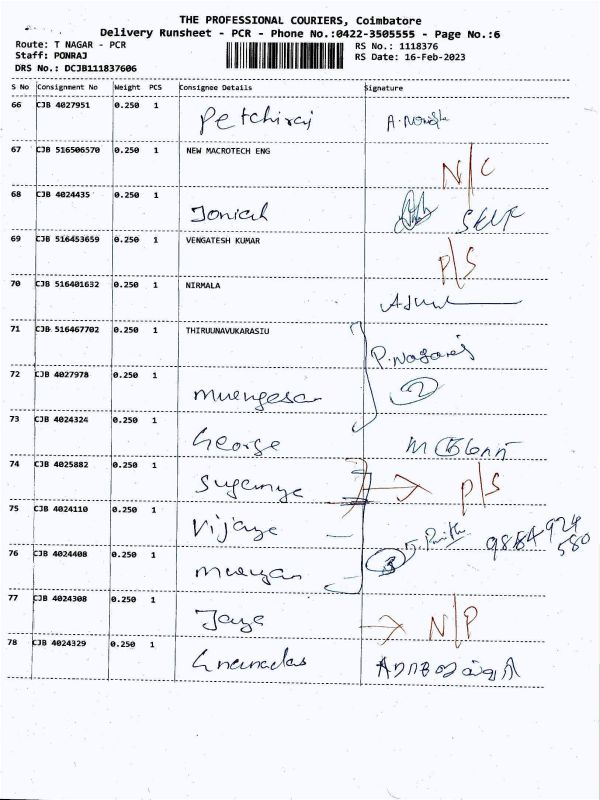 THE PROFESSIONAL COURIERS, Coimbatore
Delivery Runsheet - PCR - Phone No.:0422-3505555 - Page No.:6
Route: T NAGAR - PCR RS No.: 1118376
Staff: PONRAJ RS Date: 16-Feb-2023
DRS No.: DCJB111837606
S No Consignment No Weight PCS Consignee Details Signature
66 CJB 4027951 0.250 1 Petchiraj
67 CJB 516506570 0.250 1 NEW MACROTECH ENG N/C
68 CJB 4024435 0.250 1
69 CJB 516453659 0.250 1 VENGATESH KUMAR P/S
70 CJB 516401632 0.250 1 NIRMALA
71 CJB 516467702 0.250 1 THIRUUNAVUKARASIU
72 CJB 4027978 0.250 1 2
73 CJB 4024324 0.250 1 George
74 CJB 4025882 0.250 1 P/S
75 CJB 4024110 0.250 1 Vijaya
76 CJB 4024408 0.250 1 Murugan 3
77 CJB 4024308 0.250 1 Jaya N/P
78 CJB 4024329 0.250 1 Gnanadas